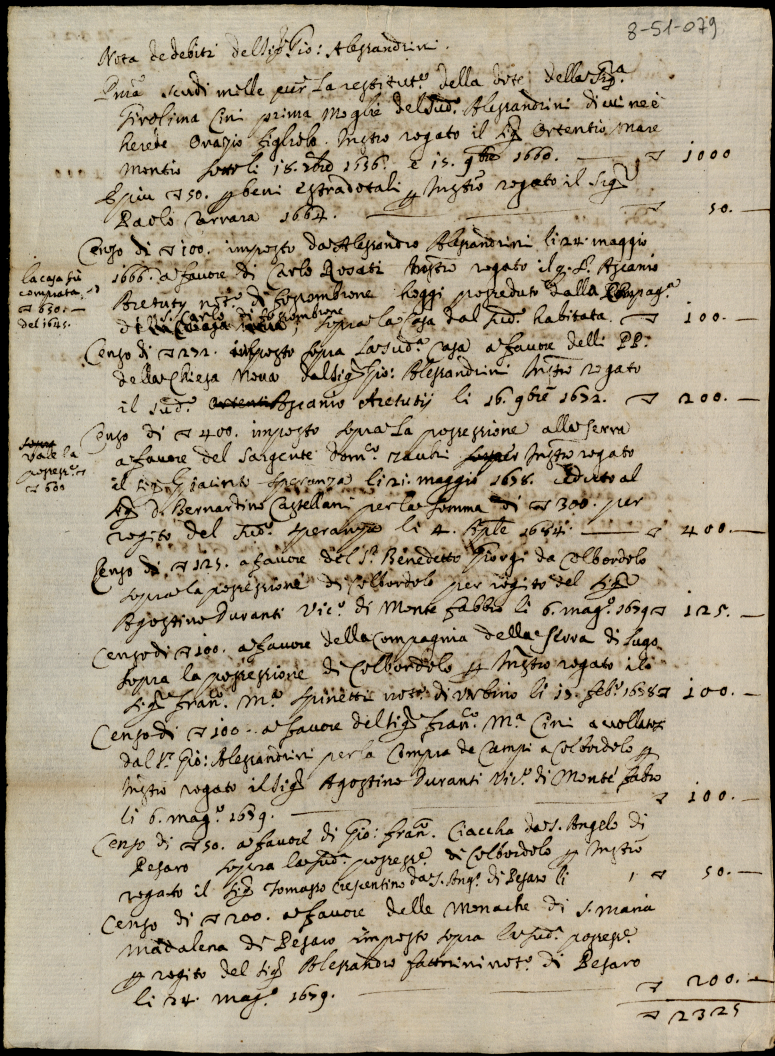 8-51-079
Nota de debiti del Sigr Gio: Alessandrini.
Prima scudi mille per la restitute. della dote della Sigra
Girolima Cini prima Moglie del Sudo. Alessandrini di cui ne è
herede Orazio figliolo. Instro rogato il Sigr Ortentio Mare
Montio sotto li 18. 1656. e 15. 9bre 1660. — 1000
E piu 50. per beni estradotali per Instro rogato il Sigr
Paolo Carrara 1664. — 50. —
Censo di 100. imposto da Alessandro Alessandrini li 24. maggio
1666. a favore di Carlo Rosati Instro rogato il Ascanio
Aretuty noto. di fossombrone hoggi posseduto dalla Compaga.
la casa fu
comprata
630. —
del 1645.
S. Carlo di fossombrone
di sopra la Casa dal Sudo. habitata. — 100. —
Censo di 232. imposto sopra la Suda. casa a favore delli PP:
della Chiesa Nova dal Sigr Gio: Alessandrini Instro rogato
il Sudo. Ascanio Aretutij li 16. 9bre 1672. 200. —
Censo di 400. imposto sopra la possessione alla Serra
a favore del Sargente Domco. Instro rogato
vale la
possesse.
600
il Sigr Giacinto Speranza li 21. maggio 1678. ceduto al
Sigr D. Bernardino Castellani per la somma di 300. per
rogito del Sudo. Speranza li 4. 1684. — 400. —
Censo di 125. a favore del Sr. Benedetto Giorgi da Colbordolo
sopra la possessione di Colbordolo per rogito del Sigr
Agostino Duranti Vico. di Monte fabbro li 6. mago. 1679 125. —
Censo di 100. a favore della Compagnia della di
sopra la possessione di Colbordolo per Instro rogato il
Sigr Frano. Ma. Spinetti noto. di Urbino li 15. febo. 1678 100. —
Censo di 100. a favore del Sigr Franco. Ma Cini
dal Sr. Gio: Alessandrini per la Compra de Campi a Colbordolo per
Instro rogato il Sigr Agostino Duranti Vico. di Monte fabro
li 6. mago. 1679. — 100. —
Censo di 50. a favore di Gio: Frano. Ciaccha da S. Angelo di
Pesaro sopra la Suda. possesse. di Colbordolo per Instro
rogato il Sigr Tomasso Crescentino da S. Ango. di Pesaro li 50. —
Censo di 200. a favore delle Monache di S. Maria
Madalena di Pesaro imposto sopra la Suda. possesse.
per rogito del Sigr Alessandro noto. di Pesaro
li 24. mago. 1679. — 200. —
2325